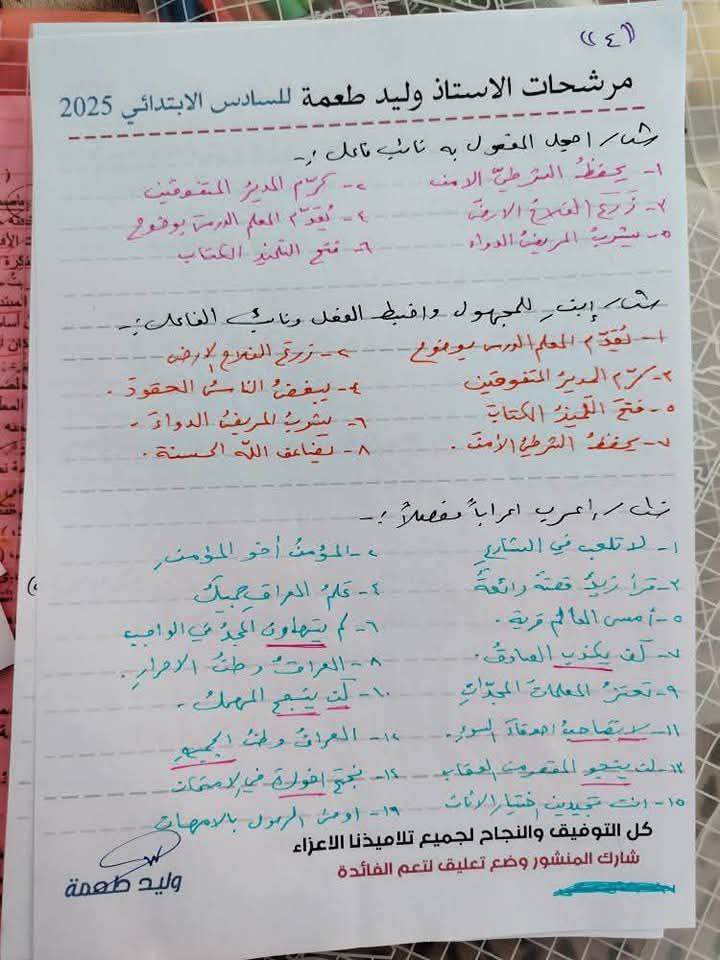 ((٤))
مرشحات الاستاذ وليد طعمة للسادس الابتدائي 2025
اجعل المفعول به نائب فاعل :-
١- يحفظُ الشرطيُّ الامن ٢- كرّم المديرُ المتفوقين
٣- زرع الفلاحُ الارضَ ٤- يُقدّم المعلم الدرسَ بوضوح
٥- يشربُ المريضُ الدواء ٦- فتح التلميذ الكتاب
إبنِ للمجهول واضبط الفعل ونائب الفاعل :-
١- يُقدّم المعلم الدرس بوضوح ٢- زرع الفلاح الارض
٣- كرّم المديرُ المتفوقين ٤- يبغضُ الناسُ الحقودَ .
٥- فتحَ التلميذُ الكتابَ ٦- يشربُ المريضُ الدواءَ .
٧- يحفظُ الشرطيُ الأمنَ . ٨- يضاعف اللّه الحسنة .
اعرب اعراباً مفصلاً :-
١- لا تلعب في الشارعِ ٢- المؤمنُ أخو المؤمنِ
٣- قرأ زيدٌ قصةً رائعةً ٤- علمُ العراقِ جميلٌ
٥- أمسى العالم قرية . ٦- لم يتهاون المجدُ في الواجب
٧- لن يكذب الصادقُ . ٨- العراقُ وطنُ الاحرارِ .
٩- تعتزُ المعلماتُ المجدّاتِ ١٠- لن ينجح المهملُ .
١١- لا تصاحبْ اصدقاءَ السوءِ . ١٢- العراقُ وطنُ الجميعِ
١٣- لن ينجو المقصرون العقاب ١٤- نجحَ اخوك في الامتحان
١٥- انت تجيدين اختيار الأثاث ١٩- اوصى الرسول بالامهات
كل التوفيق والنجاح لجميع تلاميذنا الاعزاء
شارك المنشور وضع تعليق لتعم الفائدة
وليد طعمة